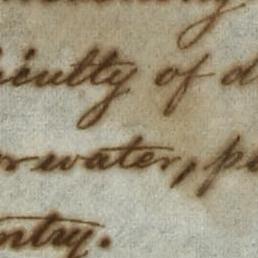 iculty of d
r water, p
ntry.